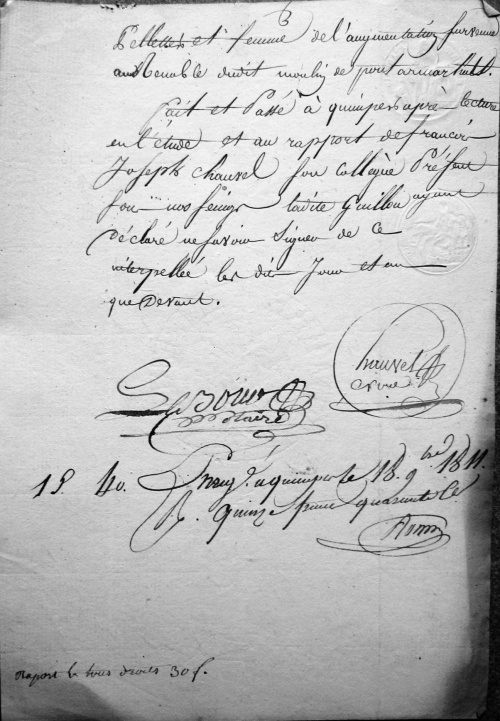 Pelletier et femme de l'augmentation survenue
audit Convenable droit moulin de pontarmarthul.
fait et Passé à quimper après lecture
en l'étude et au rapport de françois
Joseph Chauvel Son collègue Présent
Sou nos Seings ladite Guillou ayant
Déclaré ne Savoir Signer de ce
interpellée les dits Jour et an
que Devant.
Chauvel
notaire
15. 40. Enreg. à quimper le 18 9bre 1811.
R. quinze francs quarante c.
Raport & tous droits 30 f.